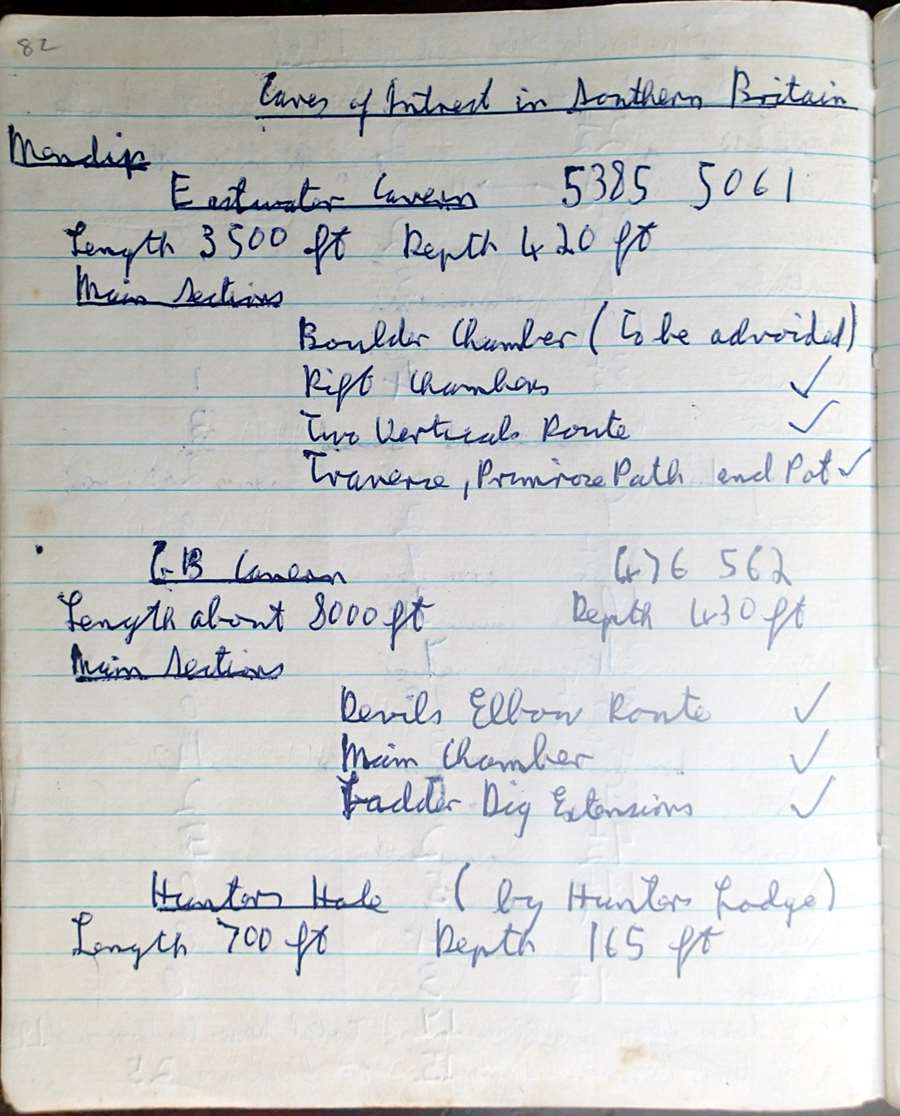 82
Caves of Intrest in Southern Britain
Mendip
Eastwater Cavern 5385 5061
Length 3500 ft Depth 420 ft
Main Sections
Boulder Chamber (To be advoided)
Rift Chambers ✓
Two Verticals Route ✓
Traverse, Primrose Path and Pot ✓
G-B Cavern 476 562
Length about 8000 ft Depth 430 ft
Main Sections
Devils Elbow Route ✓
Main Chamber ✓
Ladder Dig Extensions ✓
Hunters Hole (by Hunters Lodge)
Length 700 ft Depth 165 ft